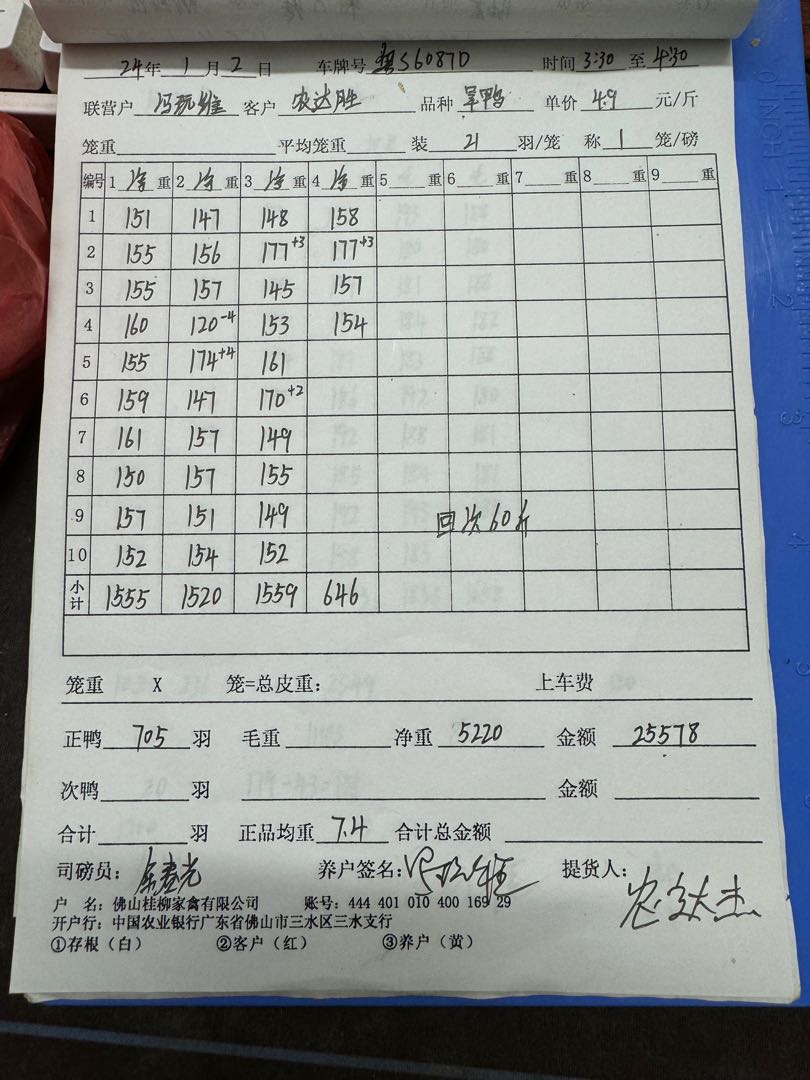 24年 1月 2日 车牌号 粤S6087D 时间 3:30 至 4:30
联营户 冯玩维 客户 农达胜 品种 旱鸭 单价 4.9 元/斤
笼重 平均笼重 装 21 羽/笼 称 1 笼/磅
编号 1 净 重 2 净 重 3 净 重 4 净 重 5 重 6 重 7 重 8 重 9 重
1 151 147 148 158
2 155 156 177+3 177+3
3 155 157 145 157
4 160 120-4 153 154
5 155 174+4 161
6 159 147 170+2
7 161 157 149
8 150 157 155
9 157 151 149 回次60斤
10 152 154 152
小计 1555 1520 1559 646
笼重 X 笼=总皮重: 上车费
正鸭 705 羽 毛重 净重 5220 金额 25578
次鸭 羽 金额
合计 羽 正品均重 7.4 合计总金额
司磅员: 养户签名: 提货人: 农达杰
户 名: 佛山桂柳家禽有限公司 账号: 444 401 010 400 169 29
开户行: 中国农业银行广东省佛山市三水区三水支行
①存根（白） ②客户（红） ③养户（黄）